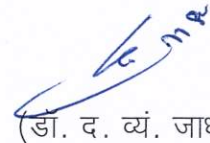 (डॉ. द. व्यं. जाध